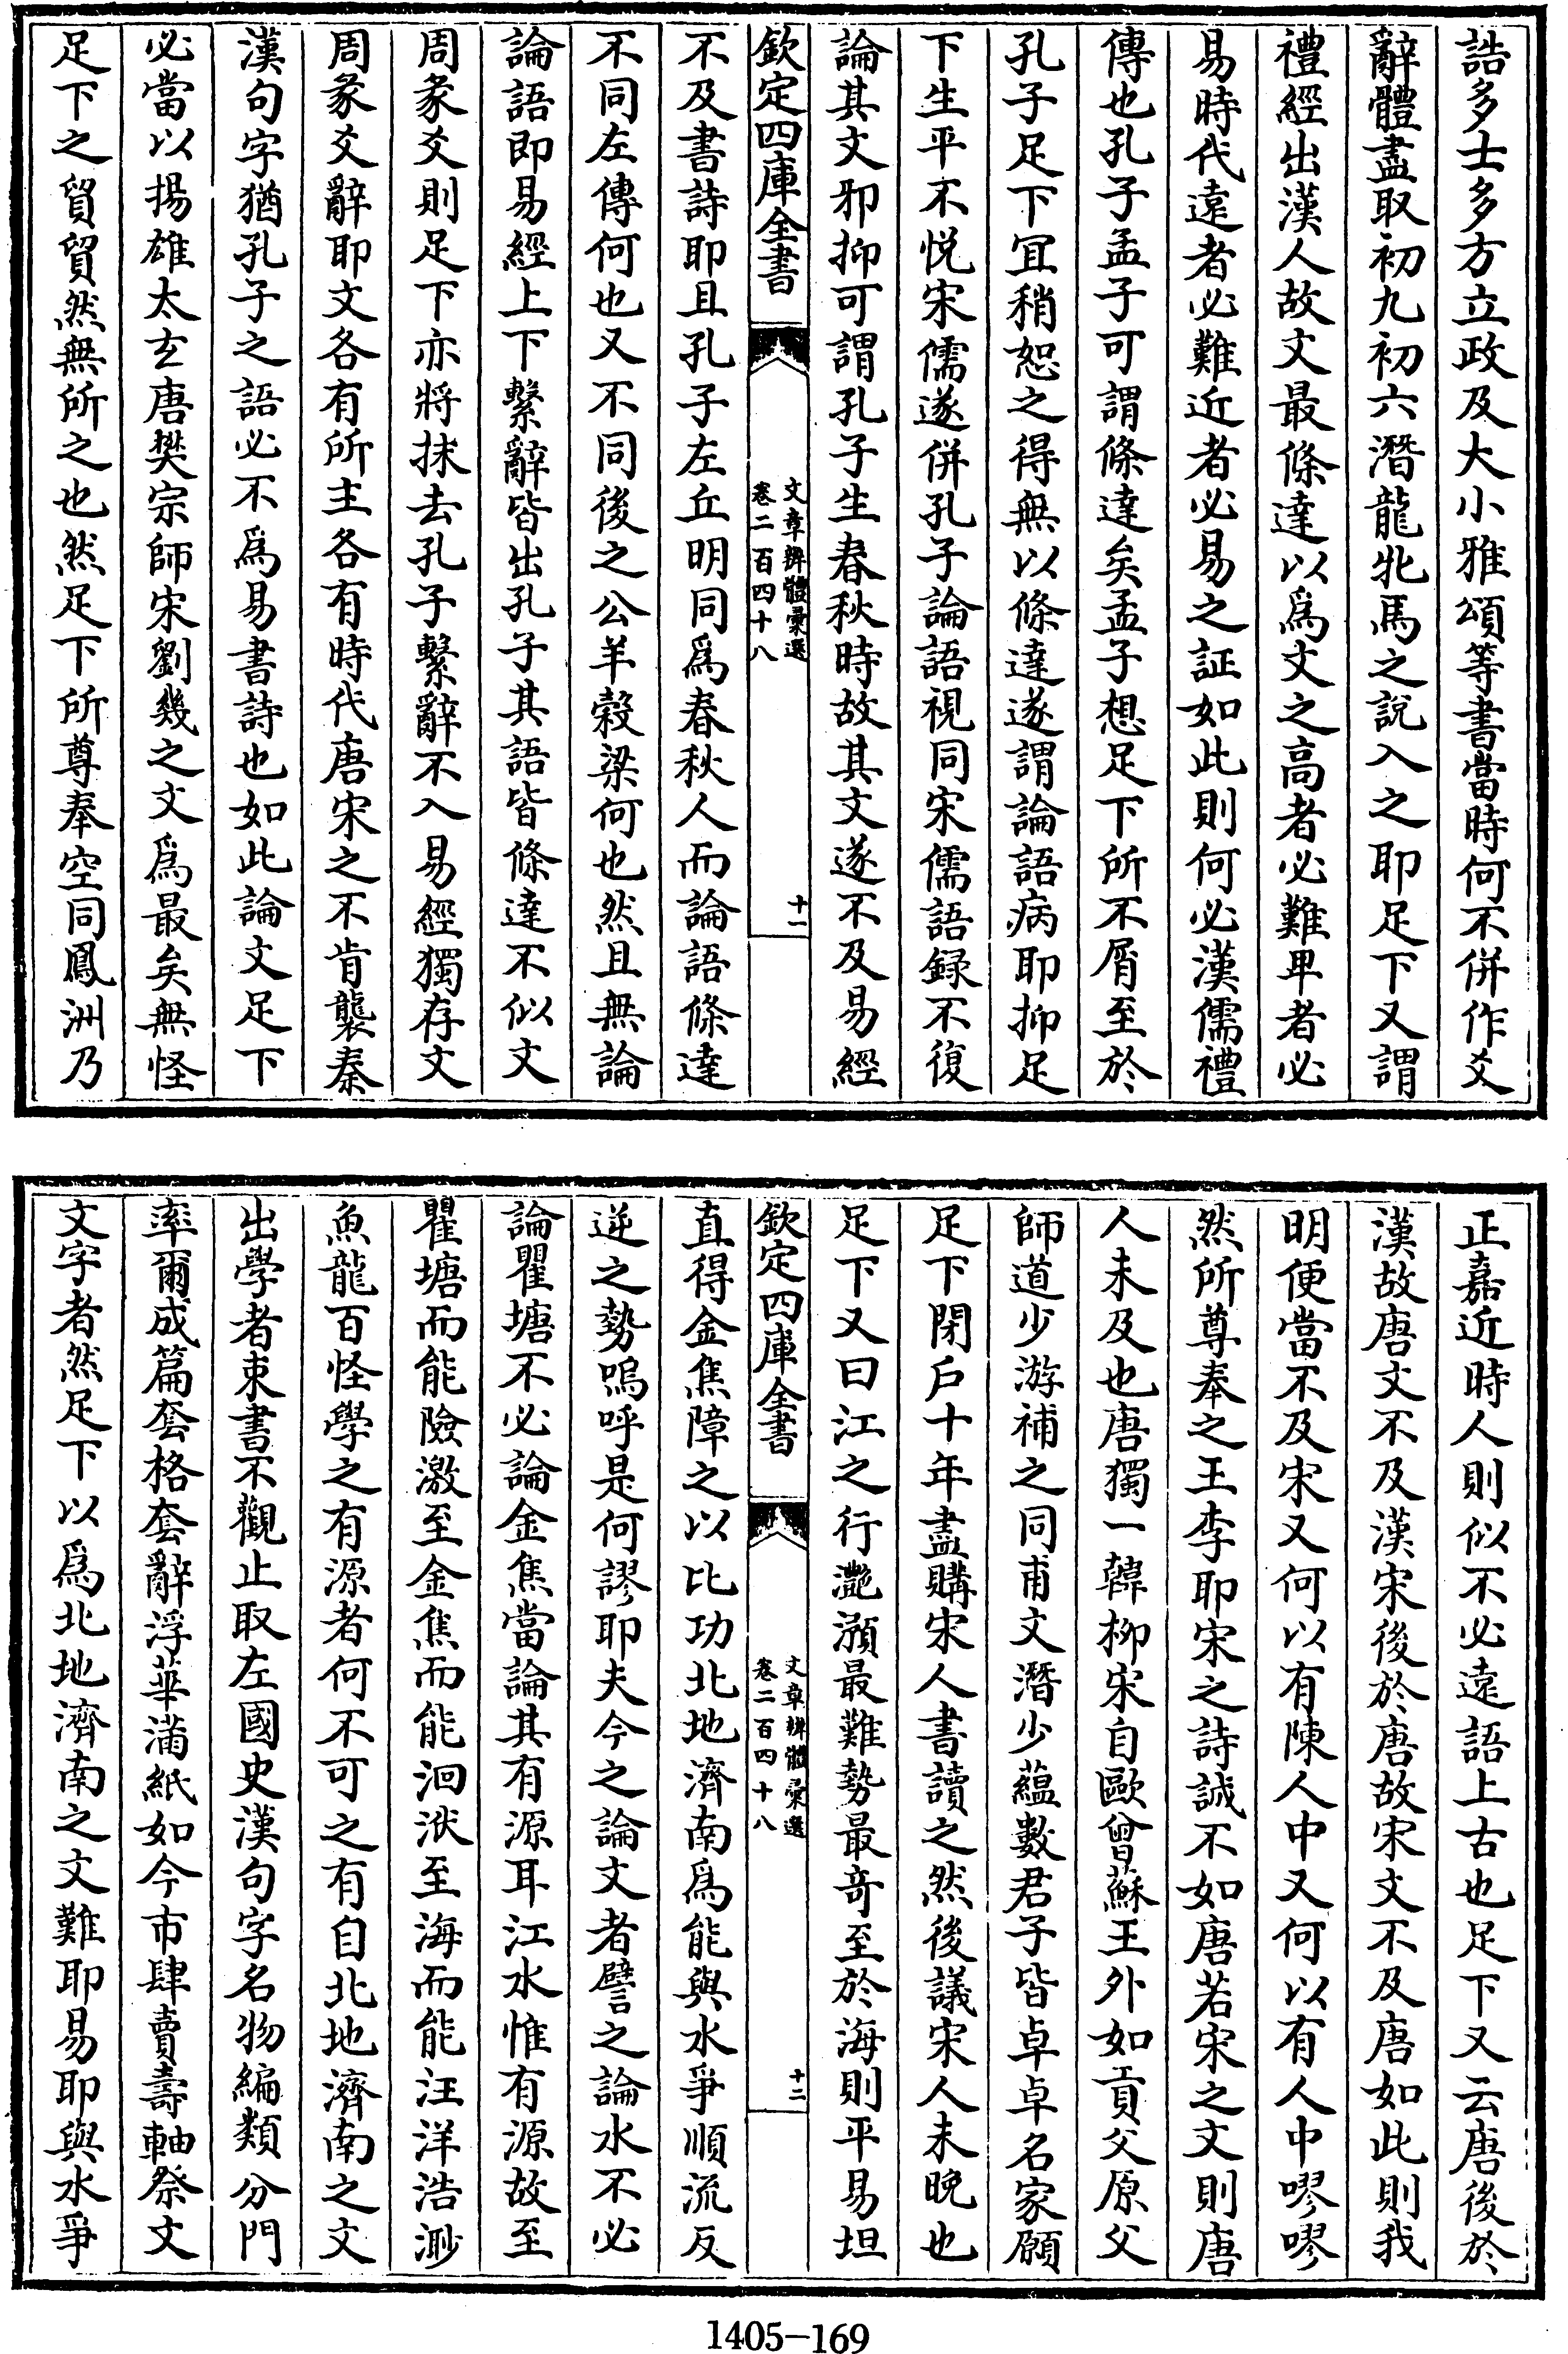 誥多士多方立政及大小雅頌等書當時何不併作爻
辭體盡取初九初六潛龍牝馬之說入之耶足下又謂
禮經出漢人故文最條達以為文之高者必難卑者必
易時代遠者必難近者必易之証如此則何必漢儒禮
傳也孔子孟子可謂條達矣孟子想足下所不屑至於
孔子足下宜稍恕之得無以條達遂謂論語病耶抑足
下生平不悅宋儒遂併孔子論語視同宋儒語録不復
論其文邪抑可謂孔子生春秋時故其文遂不及易經
欽定四庫全書
文章辨體彙選
卷二百四十八
十一
不及書詩耶且孔子左丘明同為春秋人而論語條達
不同左傳何也又不同後之公羊穀梁何也然且無論
論語即易經上下繫辭皆出孔子其語皆條達不似文
周彖爻則足下亦將抹去孔子繫辭不入易經獨存文
周彖爻辭耶文各有所主各有時代唐宋之不肯襲秦
漢句字猶孔子之語必不為易書詩也如此論文足下
必當以揚雄太玄唐樊宗師宋劉幾之文為最矣無怪
足下之貿貿然無所之也然足下所尊奉空同鳳洲乃
正嘉近時人則似不必遠語上古也足下又云唐後於
漢故唐文不及漢宋後於唐故宋文不及唐如此則我
明便當不及宋又何以有陳人中又何以有人中嘐嘐
然所尊奉之王李耶宋之詩誠不如唐若宋之文則唐
人未及也唐獨一韓柳宋自歐曾蘇王外如貢父原父
師道少游補之同甫文潛少蘊數君子皆卓卓名家願
足下閉戶十年盡購宋人書讀之然後議宋人未晚也
足下又曰江之行灔澦最難勢最奇至於海則平易坦
欽定四庫全書
文章辨體彙選
卷二百四十八
十二
直得金焦障之以比功北地濟南為能與水爭順流反
逆之勢嗚呼是何謬耶夫今之論文者譬之論水不必
論瞿塘不必論金焦當論其有源耳江水惟有源故至
瞿塘而能險激至金焦而能洄洑至海而能汪洋浩渺
魚龍百怪學之有源者何不可之有自北地濟南之文
出學者束書不觀止取左國史漢句字名物編類分門
率爾成篇套格套辭浮華滿紙如今市肆賣壽軸祭文
文字者然足下以為北地濟南之文難耶易耶與水爭
1405-169